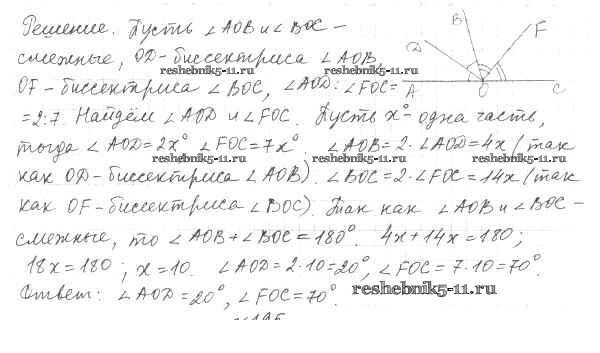 Решение. Пусть ∠AOB и ∠BOC –
смежные, OD – биссектриса ∠AOB,
OF – биссектриса ∠BOC, ∠AOD : ∠FOC =
= 2:7. Найдём ∠AOD и ∠FOC. Пусть x° – одна часть,
тогда ∠AOD = 2x° ∠FOC = 7x°. ∠AOB = 2·∠AOD = 4x (так
как OD – биссектриса ∠AOB). ∠BOC = 2·∠FOC = 14x (так
как OF – биссектриса ∠BOC). Так как ∠AOB и ∠BOC –
смежные, то ∠AOB + ∠BOC = 180°. 4x + 14x = 180;
18x = 180; x = 10. ∠AOD = 2·10 = 20°, ∠FOC = 7·10 = 70°.
Ответ: ∠AOD = 20°, ∠FOC = 70°.
B
D
F
A
O
C
reshebnik5-11.ru
reshebnik5-11.ru
reshebnik5-11.ru
reshebnik5-11.ru
reshebnik5-11.ru
reshebnik5-11.ru